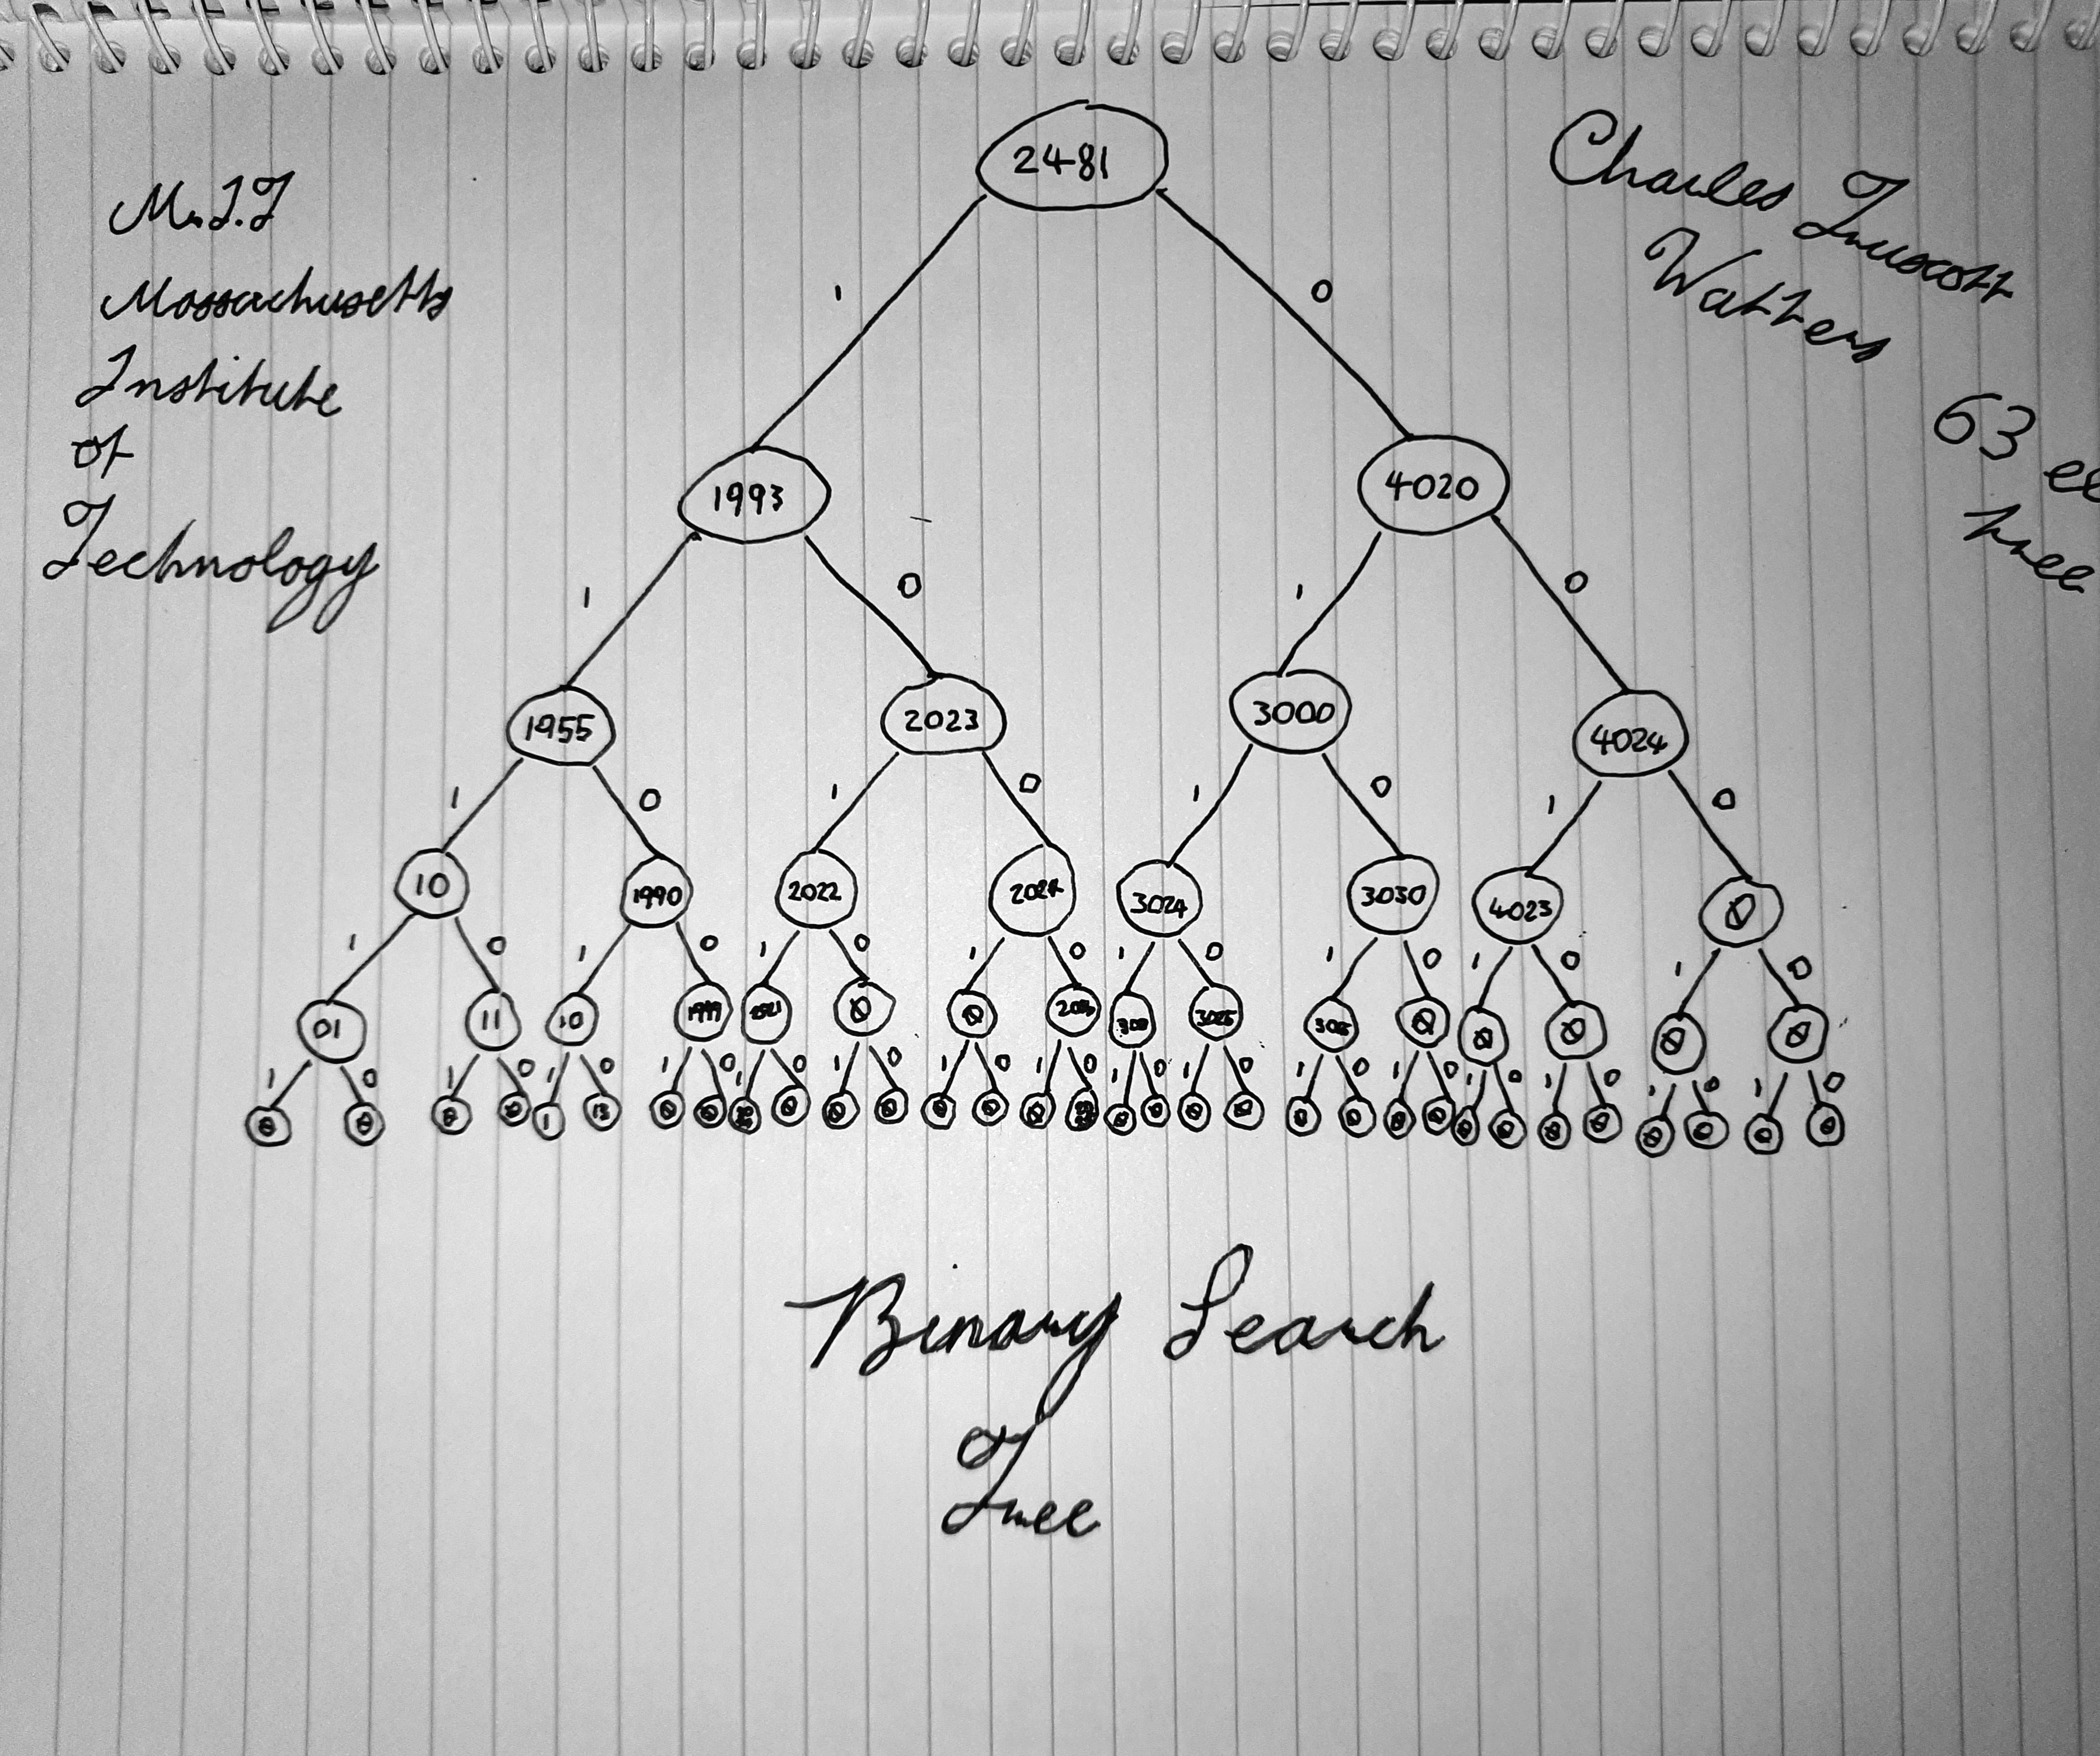 M.I.T
Massachusetts
Institute
of
Technology
Charles Truscott
Watters
63 el
tree
2481
1 0
1993 4020
1 0 1 0
1955 2023 3000 4024
1 0 1 0 1 0 1 0
10 1990 2022 3024 3030 4023 Ø
1 0 1 0 1 0 1 0 1 0 1 0 1 0 1 0
01 11 10 1999 2021 Ø Ø 3025 Ø Ø Ø Ø Ø
1 0 1 0 1 0 1 0 1 0 1 0 1 0 1 0 1 0 1 0 1 0 1 0 1 0 1 0 1 0 1 0
Ø Ø Ø 1 13 Ø Ø Ø Ø Ø Ø Ø Ø Ø Ø Ø Ø Ø Ø Ø Ø Ø Ø Ø Ø Ø Ø Ø Ø
Binary Search
Tree